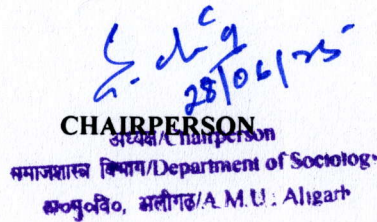 28/06/25
CHAIRPERSON
अध्यक्ष/Chairperson
समाजशास्त्र विभाग/Department of Sociology
अ०मु०वि०, अलीगढ़/A.M.U., Aligarh